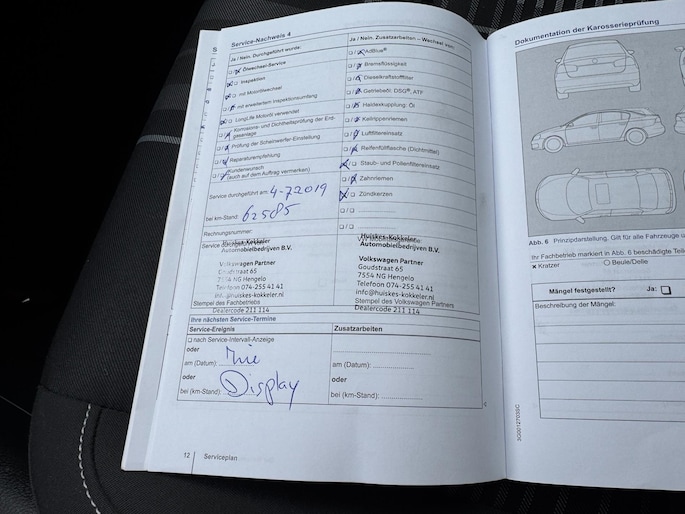 Service-Nachweis 4
Ja / Nein, Durchgeführt wurde:
Ölwechsel-Service
Inspektion
mit Motorölwechsel
mit erweitertem Inspektionsumfang
LongLife Motoröl verwendet
Korrosions- und Dichtheitsprüfung der Erd-
gasanlage
Prüfung der Scheinwerfer-Einstellung
Reparaturempfehlung
Kundenwunsch
(auch auf dem Auftrag vermerken)
Service durchgeführt am: 4-7 2019
bei km-Stand: 62585
Rechnungsnummer:
Huiskes-Kokkeler
Automobielbedrijven B.V.
Volkswagen Partner
Goudstraat 65
7554 NG Hengelo
Telefoon 074-255 41 41
info@huiskes-kokkeler.nl
Stempel des Fachbetriebs
Dealercode 211 114
Ja / Nein, Zusatzarbeiten – Wechsel von:
AdBlue®
Bremsflüssigkeit
Dieselkraftstofffilter
Getriebeöl, DSG®, ATF
Haldexkupplung: Öl
Keilrippenriemen
Luftfiltereinsatz
Reifenfüllflasche (Dichtmittel)
Staub- und Pollenfiltereinsatz
Zahnriemen
Zündkerzen
Huiskes-Kokkeler
Automobielbedrijven B.V.
Volkswagen Partner
Goudstraat 65
7554 NG Hengelo
Telefoon 074-255 41 41
info@huiskes-kokkeler.nl
Stempel des Volkswagen Partners
Dealercode 211 114
Ihre nächsten Service-Termine
Service-Ereignis
nach Service-Intervall-Anzeige
oder
am (Datum):
oder
bei (km-Stand): Display
Zusatzarbeiten
am (Datum):
oder
bei (km-Stand):
12 Serviceplan
Dokumentation der Karosserieprüfung
Abb. 6 Prinzipdarstellung. Gilt für alle Fahrzeuge
Ihr Fachbetrieb markiert in Abb. 6 beschädigte
x Kratzer O Beule/Delle
Mängel festgestellt? Ja:
Beschreibung der Mängel: